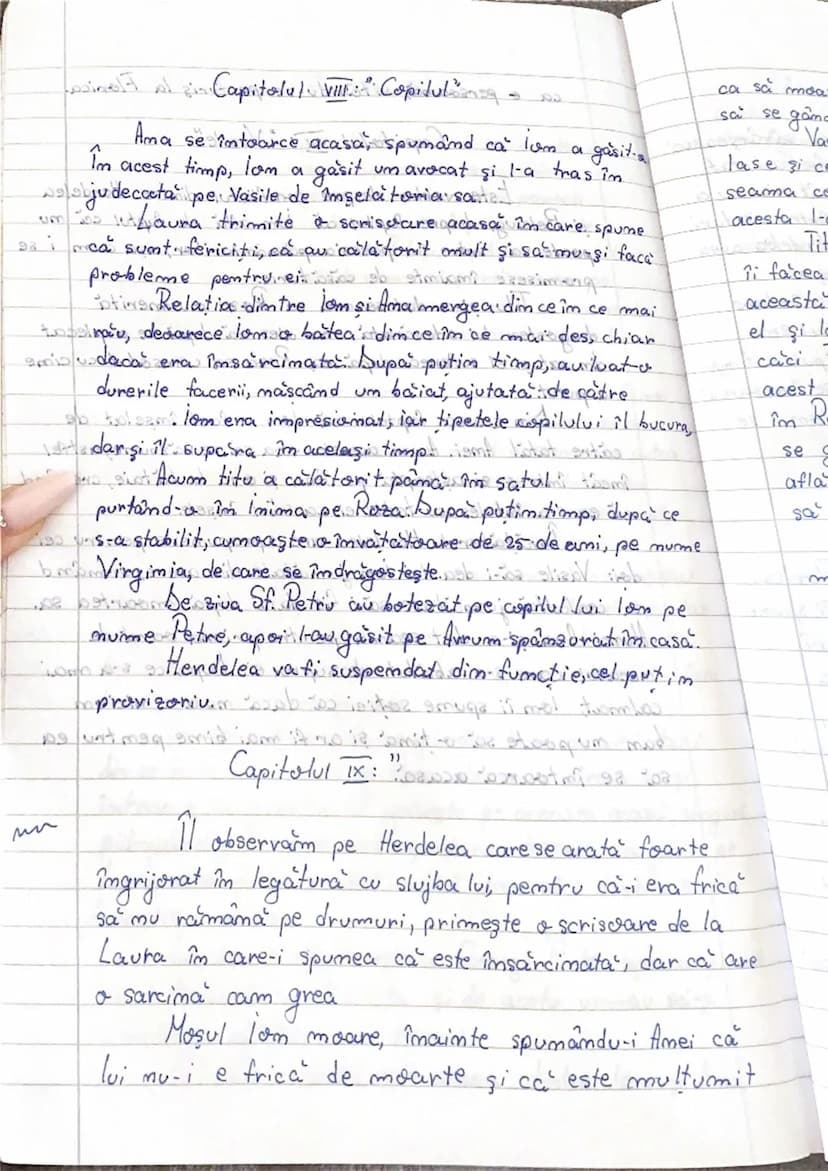 Capitolul VIII: "Copilul"
Ana se întoarce acasă, spunând că Ion a găsit-o
În acest timp, Ion a găsit un avocat și l-a tras în
judecată pe Vasile de înșelătoria sa.
Laura trimite o scrisoare acasă în care spune
că sunt fericiți, că au călătorit mult și să nu-și facă
probleme pentru ei.
Relația dintre Ion și Ana mergea din ce în ce mai
rău, deoarece Ion o bătea din ce în ce mai des, chiar
dacă era însărcinată. După puțin timp, au luat-o
durerile facerii, născând un băiat, ajutată de către
Ion era impresionat, iar țipetele copilului îl bucura,
dar și îl supăra în același timp.
Acum Titu a călătorit până în satul
purtând-o în inima pe Roza. După puțin timp, după ce
s-a stabilit, cunoaște o învățătoare de 25 de ani, pe nume
Virginia, de care se îndrăgostește.
De ziua Sf. Petru au botezat pe copilul lui Ion pe
nume Petre, apoi l-au găsit pe Avrum spânzurat în casă.
Herdelea va fi suspendat din funcție, cel puțin
provizoriu.
Capitolul IX: "
Îl observăm pe Herdelea care se arată foarte
îngrijorat în legătură cu slujba lui, pentru că-i era frică
să nu rămână pe drumuri, primește o scrisoare de la
Laura în care-i spunea că este însărcinată, dar că are
o sarcină cam grea
Moșul Ion moare, înainte spunându-i Anei că
lui nu-i e frică de moarte și că este mulțumit
ca să moa
să se gând
Va
lase și c
seama c
acesta l-
Tit
îi făcea
această
el și l
căci
acest
în R
se
afla
să